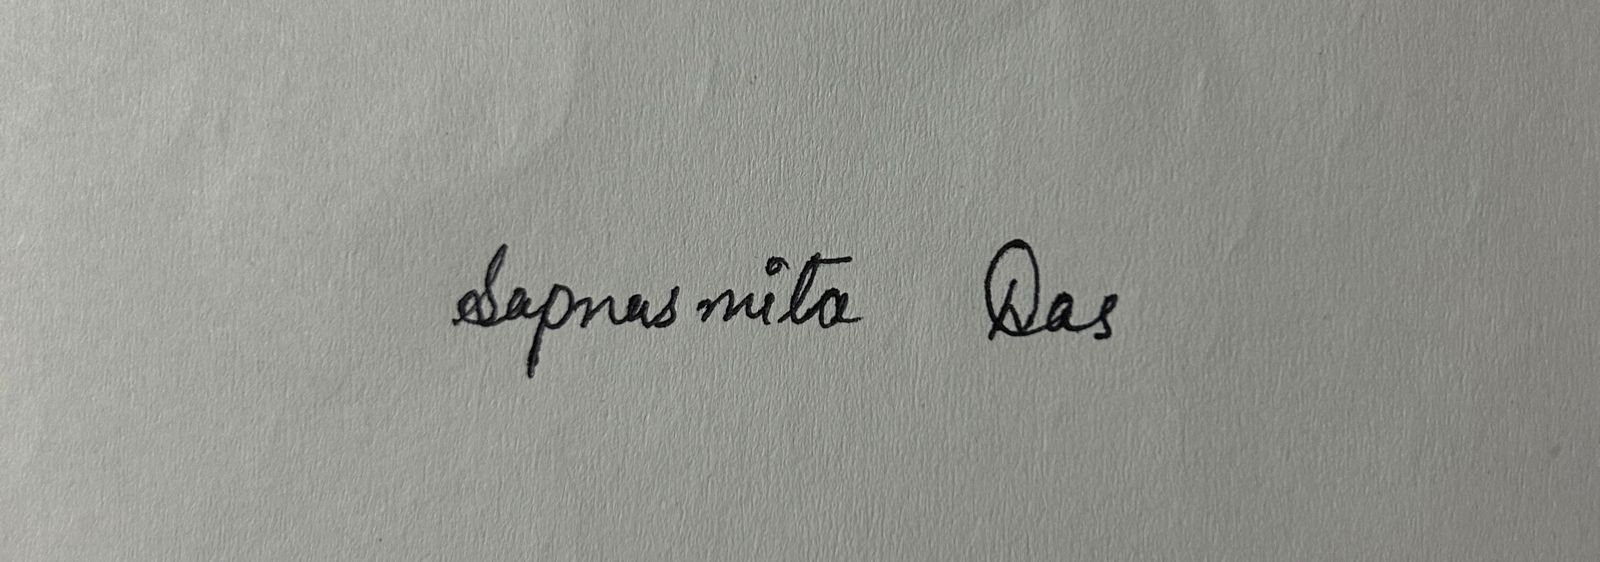 Sapnasmita Das